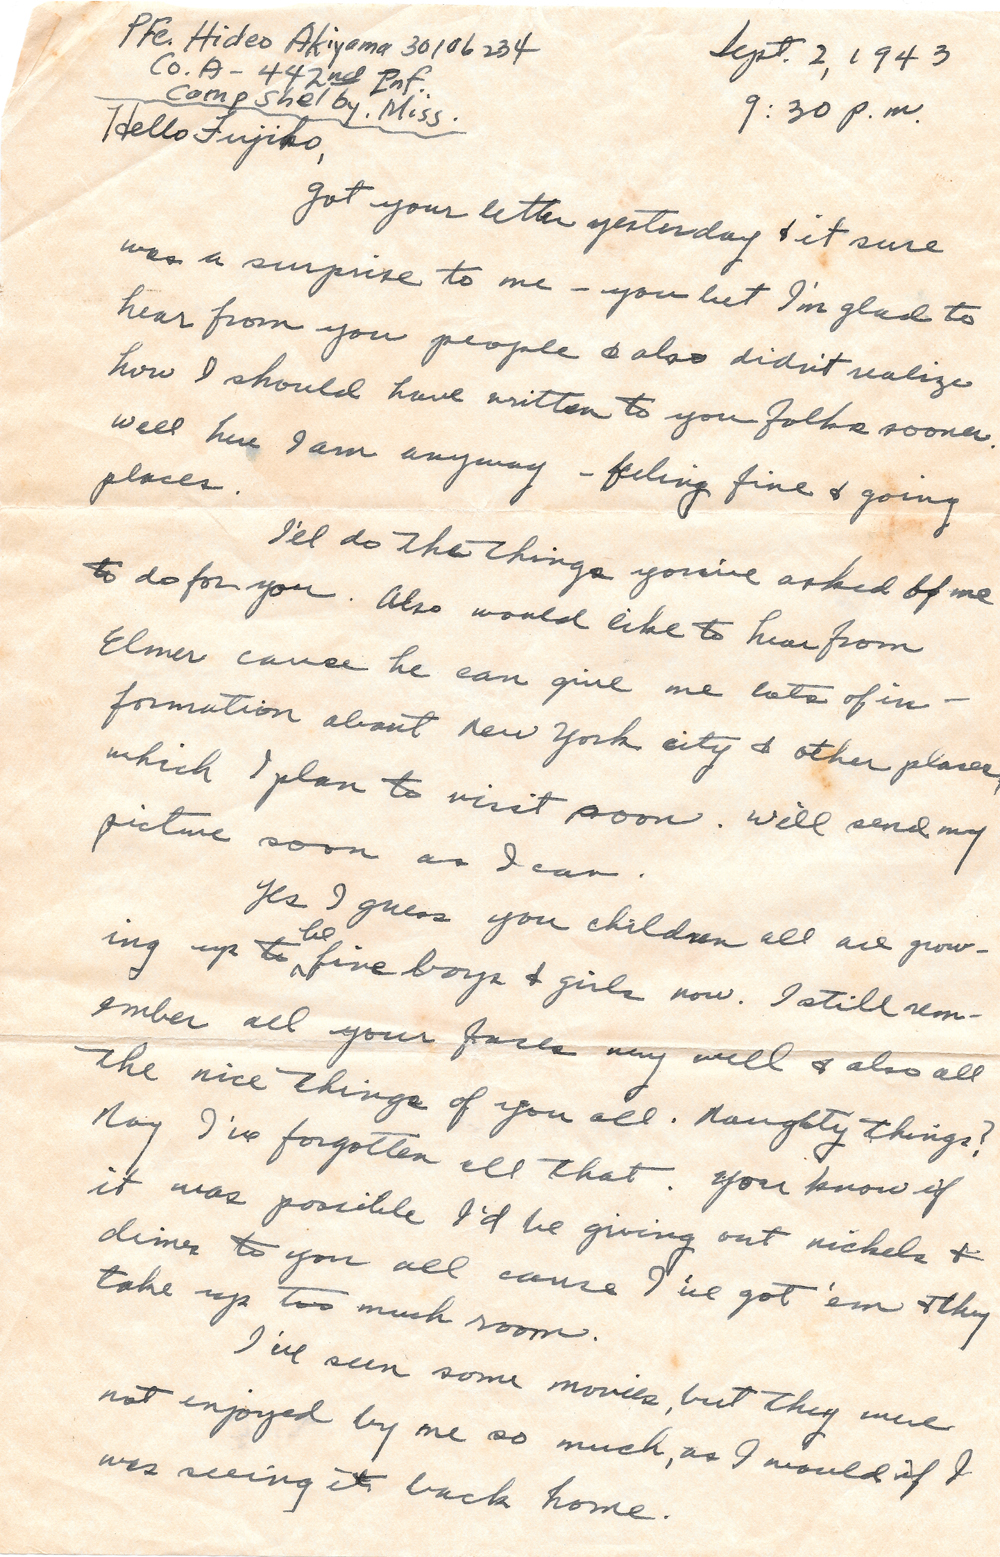 Pfc. Hideo Akiyama 30106234
Co. A - 442nd Inf.
Camp Shelby, Miss.
Sept. 2, 1943
9:30 p.m.
Hello Fujiko,
Got your letter yesterday & it sure
was a surprise to me - you bet I'm glad to
hear from you people & also didn't realize
how I should have written to you folks sooner.
Well here I am anyway - feeling fine & going
places.
I'll do the things you've asked of me
to do for you. Also would like to hear from
Elmer cause he can give me lots of in-
formation about New York city & other places,
which I plan to visit soon. Will send my
picture soon as I can.
Yes I guess you children all are grow-
ing up to be fine boys & girls now. I still rem-
ember all your faces very well & also all
the nice things of you all. Naughty things?
Nay I've forgotten all that. You know if
it was possible I'd be giving out nickels &
dimes to you all cause I've got 'em & they
take up too much room.
I've seen some movies, but they were
not enjoyed by me so much, as I would if I
was seeing it back home.